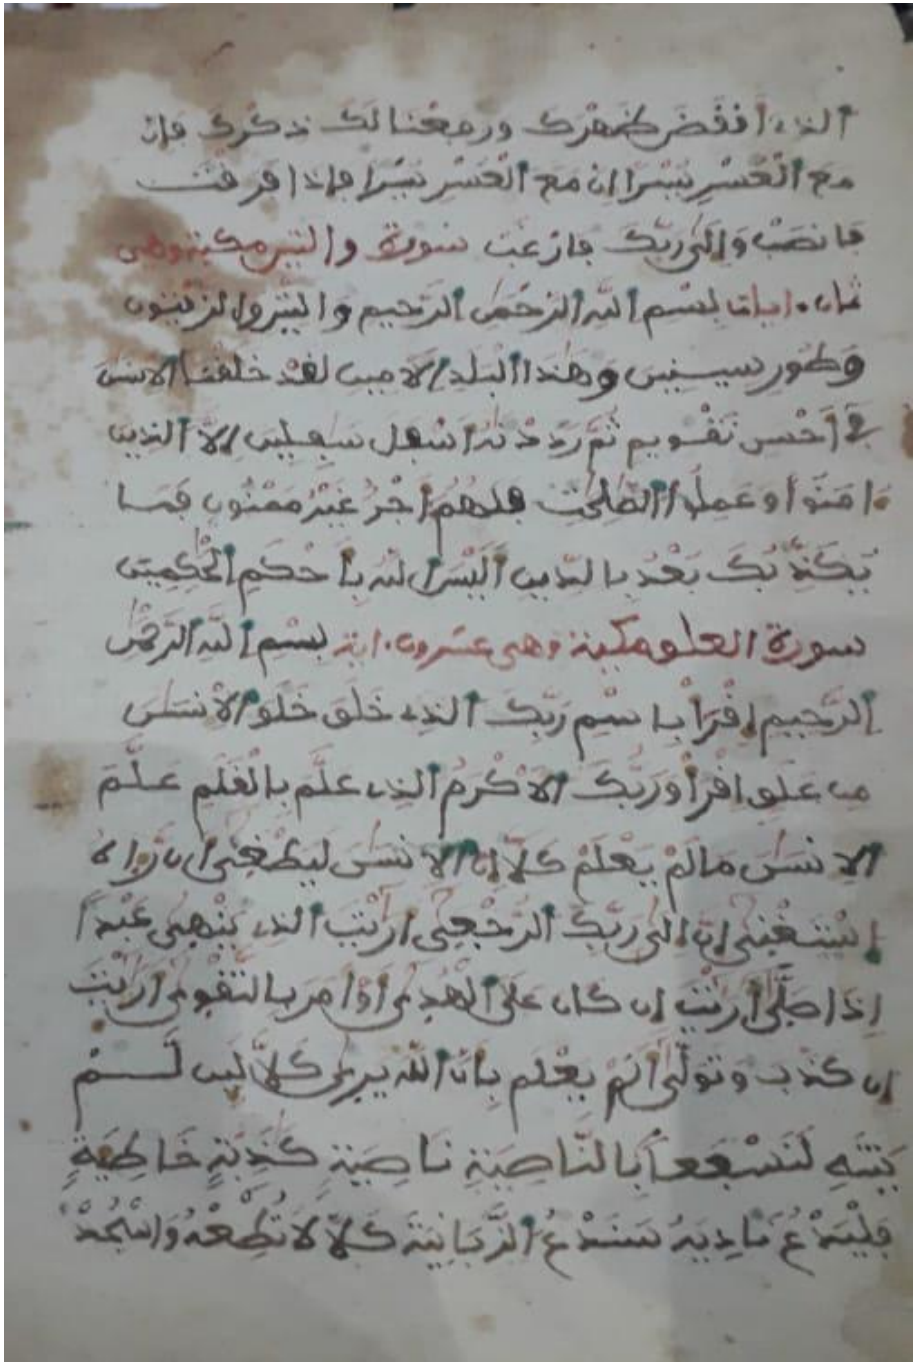 الذے أنقض ظهرك ورفعنا لك ذكرك فإن
مع العسر يسرا ان مع العسر يسرا فإذا فرغت
فانصب وإلى ربك فارغب سورة والتين مكية وهي
ثمان ءايات بسم الله الرحمن الرحيم والتين والزيتون
وطور سينين وهذا البلد الامين لقد خلقنا الانسن
في أحسن تقويم ثم رددنه أسفل سفلين إلا الذين
ءامنوا وعملوا الصلحت فلهم أجر غير ممنون فما
يكذبك بعد بالدين أليس الله بأحكم الحكمين
سورة العلق مكية وهي عشرون ءاية بسم الله الرحمن
الرحيم إقرأ باسم ربك الذے خلق خلق الانسن
من علق اقرأ وربك الاكرم الذے علم بالقلم علم
الانسن ما لم يعلم كلا إن الانسن ليطغى أن رءاه
استغنى إن إلى ربك الرجعى أريت الذے ينهى عبدا
إذا صلى أريت إن كان على الهدى أو أمر بالتقوى أريت
إن كذب وتولى ألم يعلم بأن الله يرى كلا لين لم
ينته لنسفعا بالناصية ناصية كذبة خاطية
فليدع ناديه سندع الزبانية كلا لا تطعه واسجد